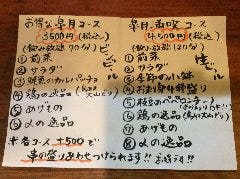 お得な皐月コース
3500円(税込)
(飲み放題90分)
ビンビール
① 前菜
② サラダ
③ 鮮魚のカルパッチョ
④ 鶏の逸品
⑤ あげもの
⑥ 〆の逸品
皐月満喫コース
4500円(税込)
(飲み放題120分)
生ビール
① 前菜
② サラダ
③ 季節の小鉢
④ お刺身4種盛り
⑤ ペペロンチーノ
⑥ 鶏の逸品
⑦ あげもの
⑧ 〆の逸品
※各コース +500で
串の盛り合わせつけられます!! お得です!!